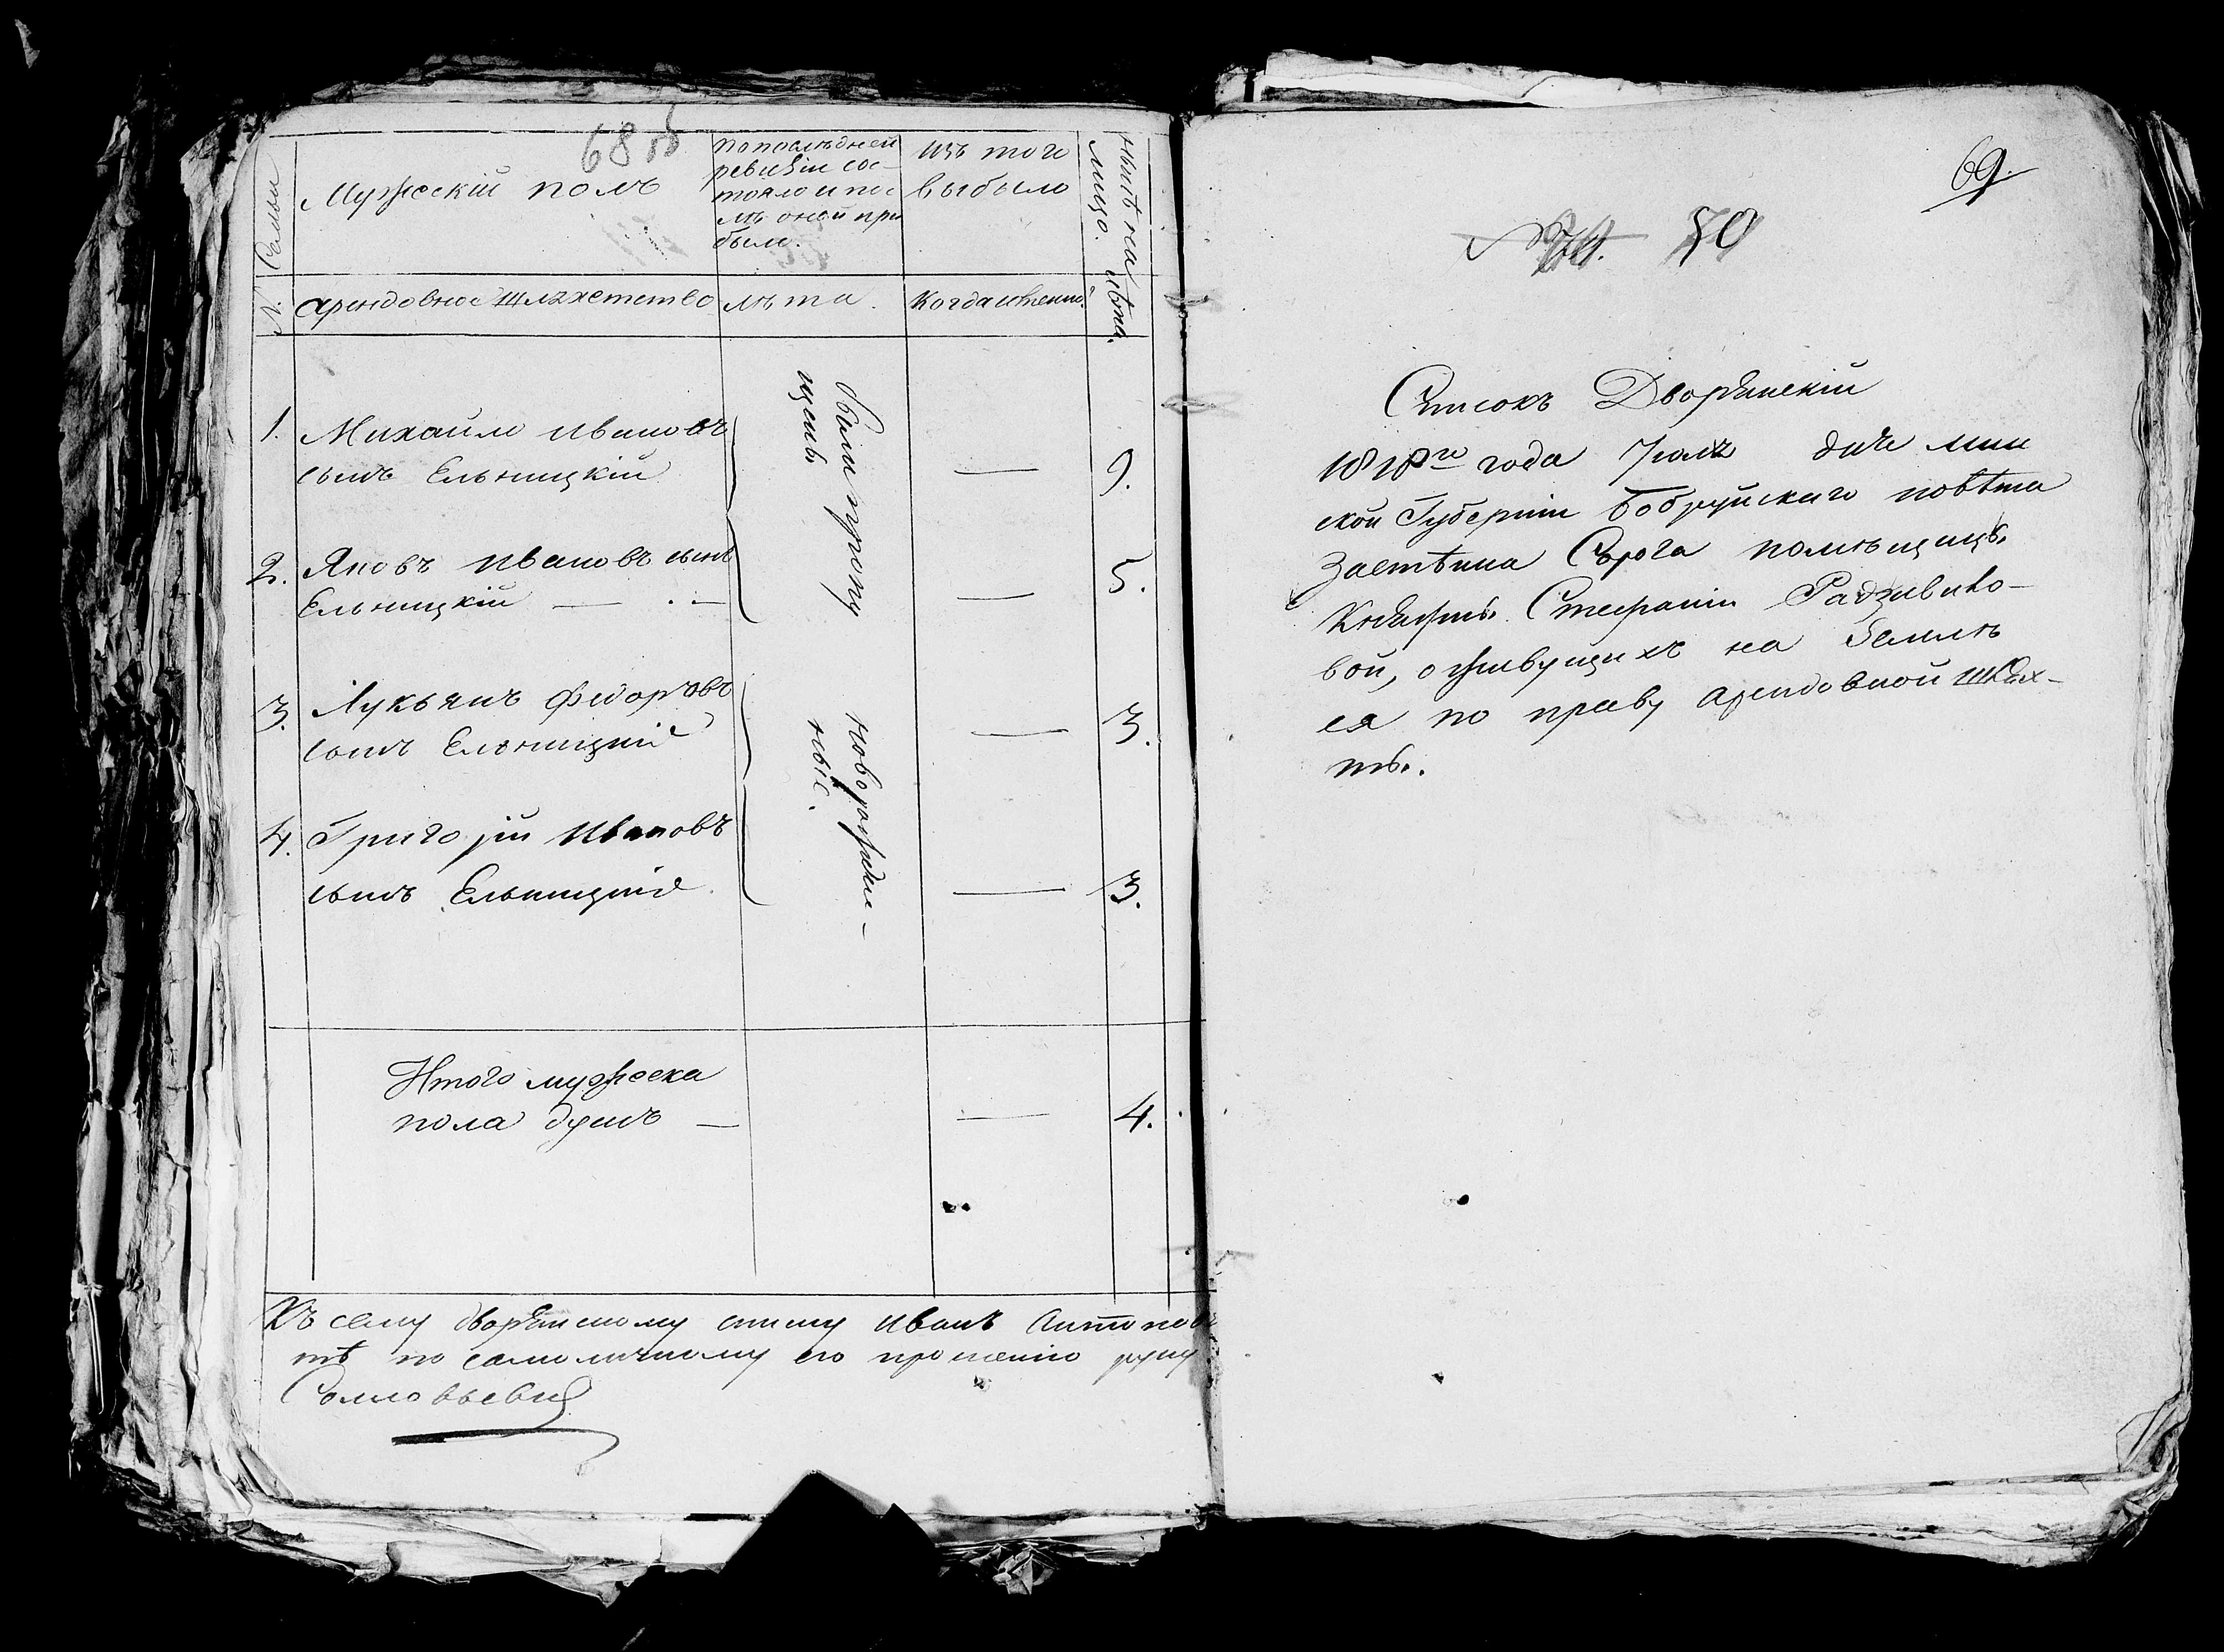 68 об
№ Семьи
Мужескій полъ
По последней
ревизіи сос-
тояло и пос
лѣ оной при
были.
изъ того
выбыло
Нынѣ на
лицо.
арендовное шляхетство
лѣта.
Когда именно?
лѣта.
1. Михайло Ивановъ
сынъ Ельницкій
9.
2. Яковъ Ивановъ сынъ
Ельницкій
5.
были пропу
щены
3. Лукьянъ Федоровъ
сынъ Ельницкій
3.
4. Григорій Ивановъ
сынъ Ельницкій
3.
новорожден-
ные.
Итого мужеска
пола душъ —
4.
Къ сему дворянскому списку Иванъ Антоновъ
по самоличному его прошенію руку
69.
70
Списокъ Дворянскій
1818го года Іюля дня мин
ской Губерніи Бобруйскаго повѣта
Застѣнка помѣщицы
Княжны Стефаніи Радзивило-
вой, о живущихъ на землѣ
ея по праву арендовной шлях-
ты.